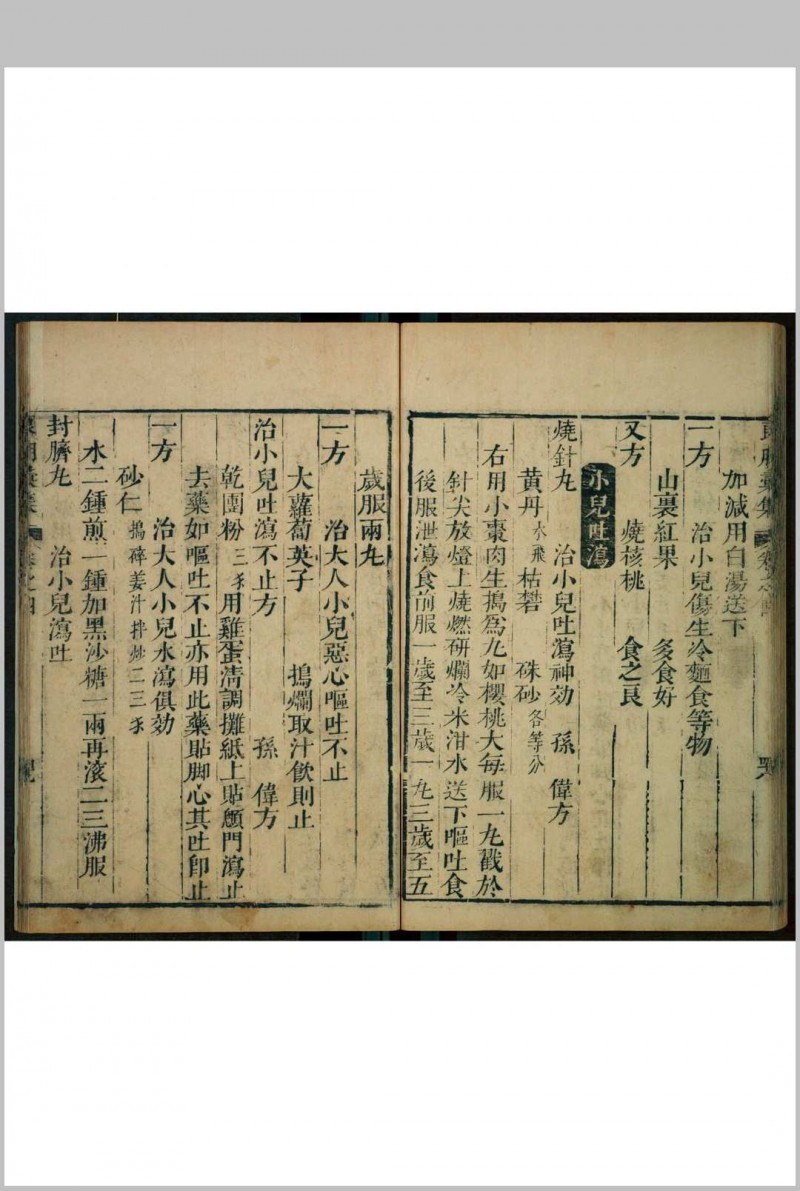 加減用白湯送下
一方　治小兒傷生冷麵食等物
山裏紅果　多食好
又方　燒核桃　食之良
小兒吐瀉
燒針丸　治小兒吐瀉神効　孫　偉方
黄丹水飛　枯礬　硃砂各等分
右用小棗肉生搗爲丸如櫻桃大每服一丸戳於
針尖放燈上燒燃研爛冷米泔水送下嘔吐食
後服泄瀉食前服一歲至三歲一丸三歲至五
歲服兩丸
一方　治大人小兒惡心嘔吐不止
大蘿蔔英子　搗爛取汁飲則止
治小兒吐瀉不止方　孫　偉方
乾團粉三錢用雞蛋清調攤紙上貼顖門瀉止
去藥如嘔吐不止亦用此藥貼脚心其吐卽止
一方　治大人小兒水瀉俱効
砂仁搗碎姜汁拌炒二三錢
水二鍾煎一鍾加黑沙糖一兩再滾二三沸服
封臍丸　治小兒瀉吐
卷之四